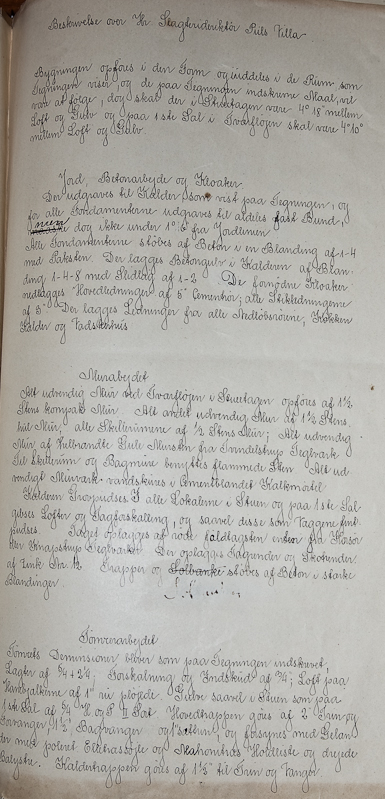 Beskrivelse over Hr. Slagteridirektør Riis Villa
Bygningen opføres i den Form og inddeles i de Rum som
Tegningen viser, og de paa Tegningen indskrevne Maal, vil
være at følge, dog skal der i Stueetagen være 4" 18" mellem
Loft og Gulv og paa 1ste Sal i Tværfløjen skal være 4" 10"
mellem Loft og Gulv.
Jord, Betonarbejde og Kloaker
Der udgraves til Kælder, som vist paa Tegningen, og
for alle Fondamenterne udgraves til aldeles fast Bund,
dog ikke under 1" fra Jordlinien
Alle Fondamenterne støbes af Beton i en Blanding af 1-4
med Laksten. Der lægges Betongulv i Kælderen af Blan-
ding 1-4-8 med Slidlag af 1-2. De fornødne Kloaker
nedlægges Hovedledninger af 5" Cementrør; alle Stikledningerne
af 5" Der lægges Ledninger fra alle Nedløbsrørene, Køkken
Kælder og Vadskehus
Murabejdet
Alt udvendig Mur ved Tværfløjen i Stueetagen opføres af 1½
Stens kompakt Mur. Alt andet udvendig Mur af 1½ Stens
hul Mur, alle Skillerumene af ½ Stens Mur; Alt udvendig
Mur af Velbrandte Gule Mursten fra Trindelstrup Teglværk
Til Skillerum og Bagmure benyttes flammede Sten Alt ud-
vendigt Murværk vandskures i Cementblandet Kalkmørtel
Kælderen Grovpudses I alle Lokalerne i Stuen og paa 1ste Sal
gibses Lofter og Tagforskalling, og saavel disse som Væggene fint-
pudses Taget oplægges af røde Faldtagsten enten fra Korsør
eller Knapstrup Teglværker Der oplægges Tagrender og Skotrender
af Zink Nr. 12 Trapper og Solbænke støbes af Beton i stærke
Blandinger.
Tømrerarbejdet
Tømrets Demensioner bliver som paa Tegningen indskrevet,
Lægter af 5/4 + 2¼; Forskalning og Indskud af ¾; Loft paa
Hanebjælkerne af 1" ru pløjede. Gulve saavel i Stuen som paa
1ste Sal af 5/4 H og P II Sort Hovedtrappen gøres af 2" Trin og
Forvanger, 1½" Bagvanger og 1" Sættrin; og forsynes med Gelæn-
der med poleret Elkirassøjle og Mahonitræs Haandliste og drejede
Balystre. Kældertrappen gøres af 1½" til Trin og Vanger.